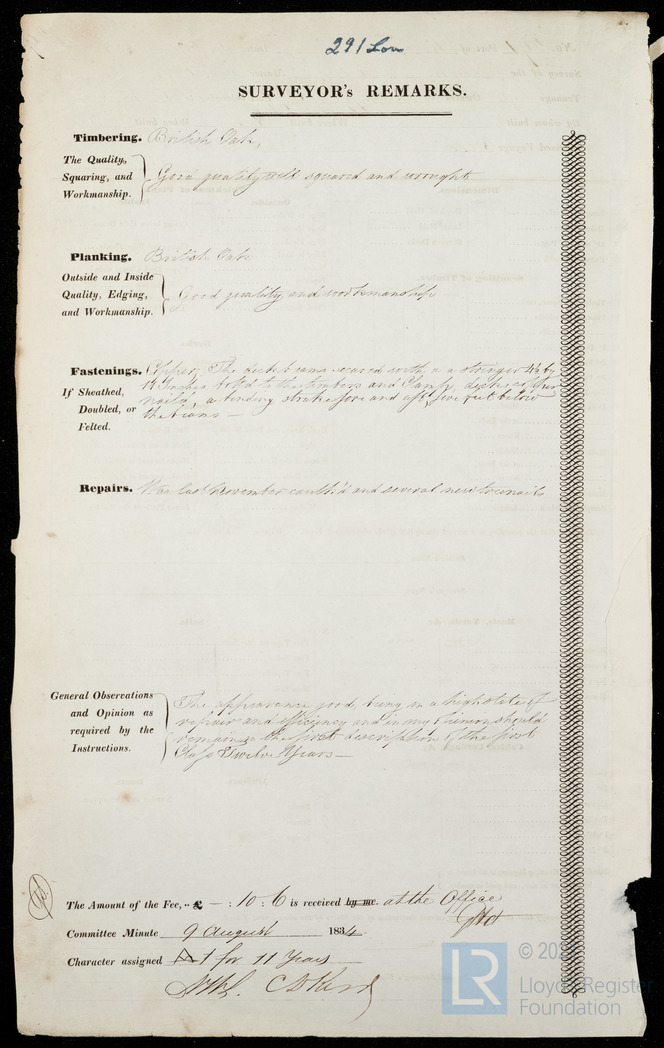 291 Lon
SURVEYOR's REMARKS.
Timbering. British Oak,
The Quality,
Squaring, and
Workmanship.
Good quality well squared and wrought
Planking. British Oak
Outside and Inside
Quality, Edging,
and Workmanship.
Good quality and workmanship
Fastenings. Copper, The deck beams secured with a stringer 4½ by
Inches bolted to the timbers and Clamp, decks copper
If Sheathed,
Doubled, or
Felted.
nail'd, a binding strake fore and aft, five feet below
the beams —
Repairs. Was last November caulk'd and several new treenails
General Observations
and Opinion as
required by the
Instructions.
The appearance good, being in a high state of
repair and efficiency and in my Opinion should
remain in the first description of the first
Class Twelve Years —
The Amount of the Fee, £ — : 10 : 6 is received by me. at the Office
Committee Minute 9 August 1834
Character assigned A1 for 11 Years
© 202
LR
Lloyd's Register
Foundation